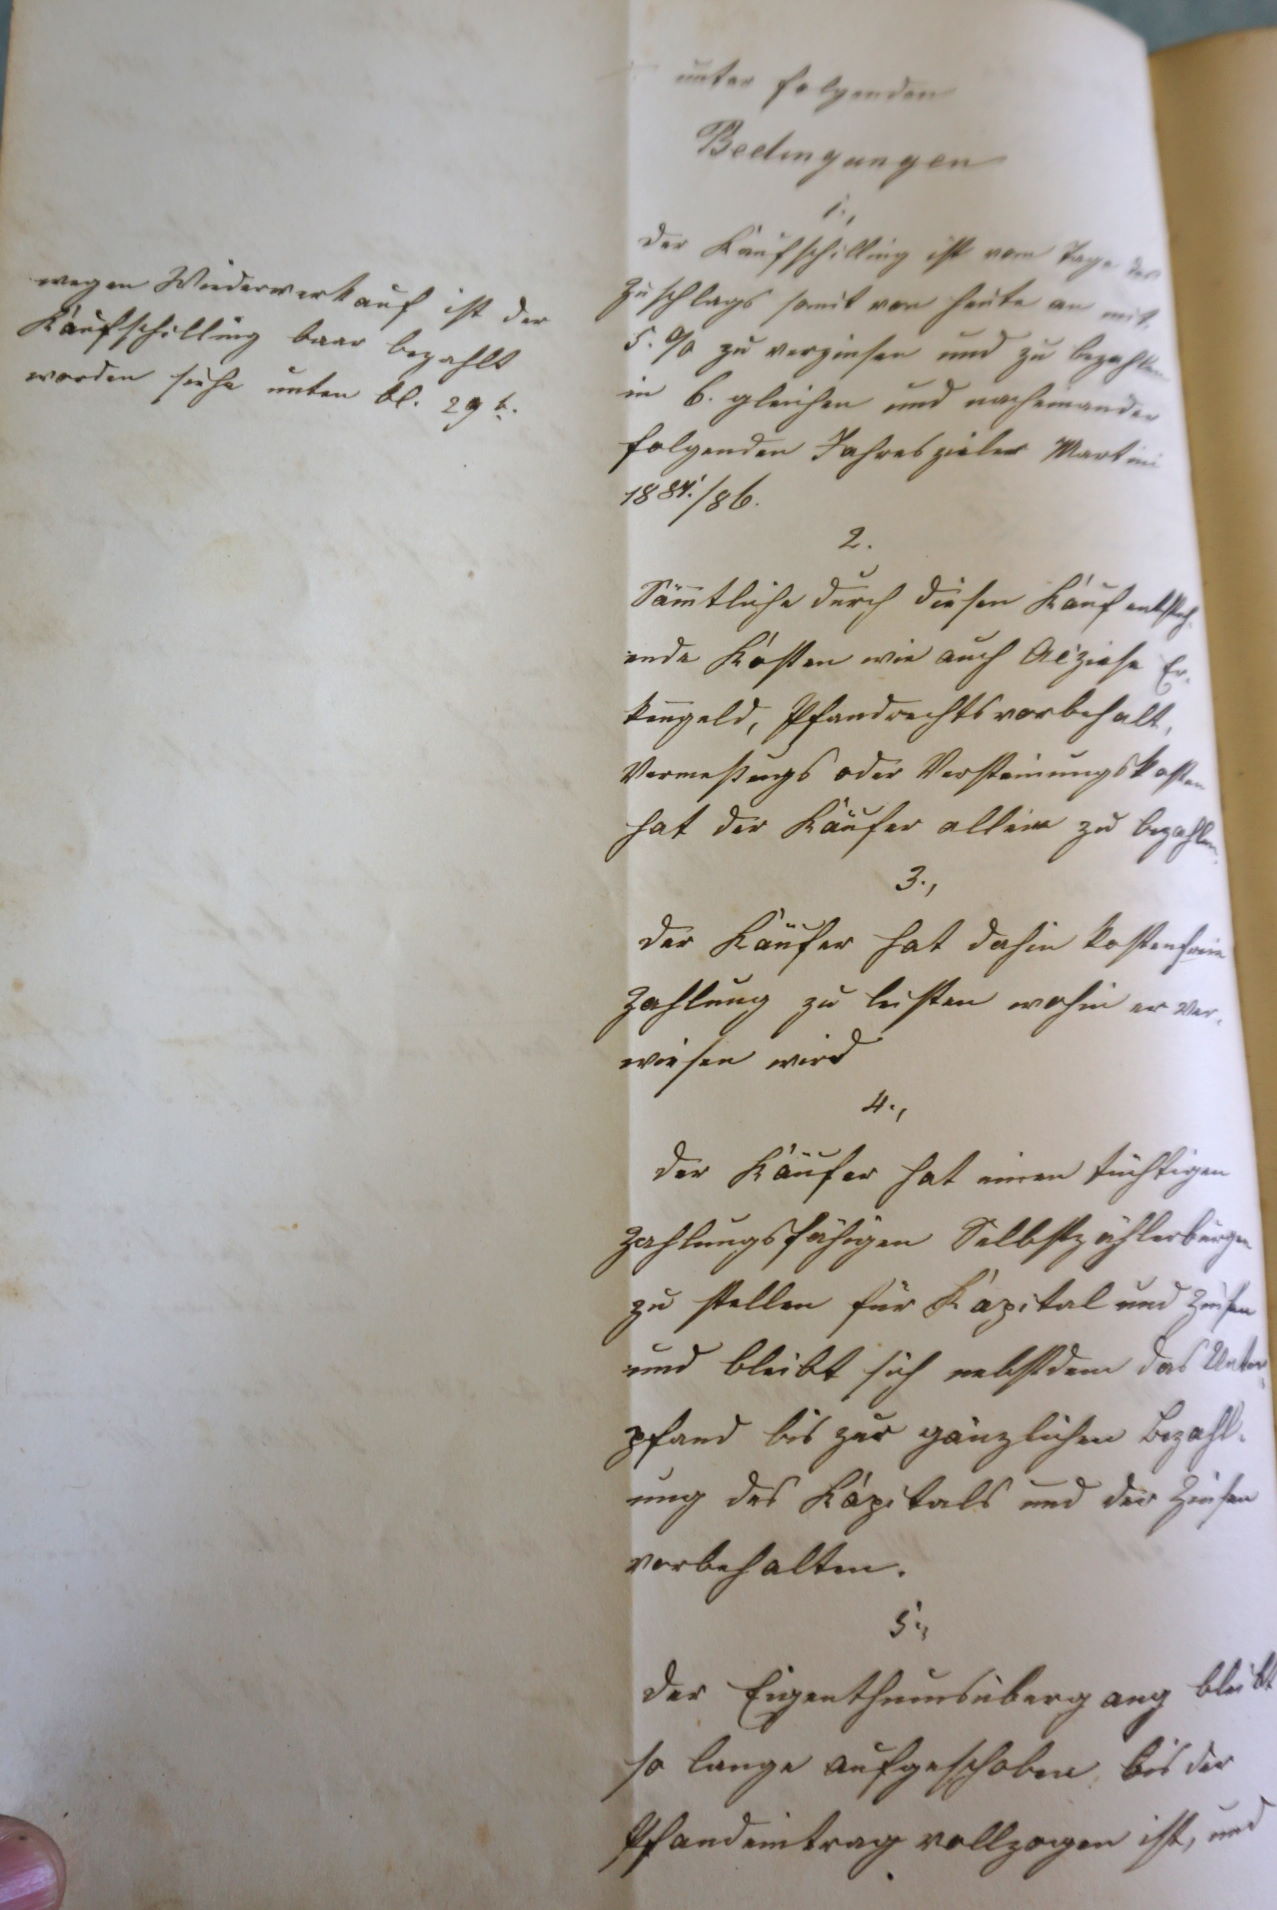 unter folgenden
Bedingungen
1.,
Der Kaufschilling ist vom Tage des
Zuschlags somit von heute an mit
5. % zu verzinsen und zu bezahlen
in 6. gleichen und nacheinander
folgenden Jahreszieler Martini
1881/86.
wegen Wiederverkauf ist der
Kaufschilling baar bezahlt
worden siehe unten bl. 29 b.
2.
Sämtliche durch diesen Kauf entsteh-
ende Kosten wie auch Acziese Er-
kenngeld, Pfandrechtsvorbehalt,
Vermeßungs oder Versteinungskosten
hat der Käufer allein zu bezahlen.
3.,
Der Käufer hat dahin kostenfreie
Zahlung zu leisten wohin er ver-
wiesen wird
4.,
Der Käufer hat einen tüchtigen
Zahlungsfähigen Selbstzahlerbürgen
zu stellen für Kapital und Zinsen
und bleibt sich nebstdem das Unter-
pfand bis zur gänzlichen Bezahl-
ung des Kapitals und der Zinsen
vorbehalten.
5.,
Der Eigenthumsübergang bleibt
so lange aufgeschoben, bis der
Pfandeintrag vollzogen ist, und